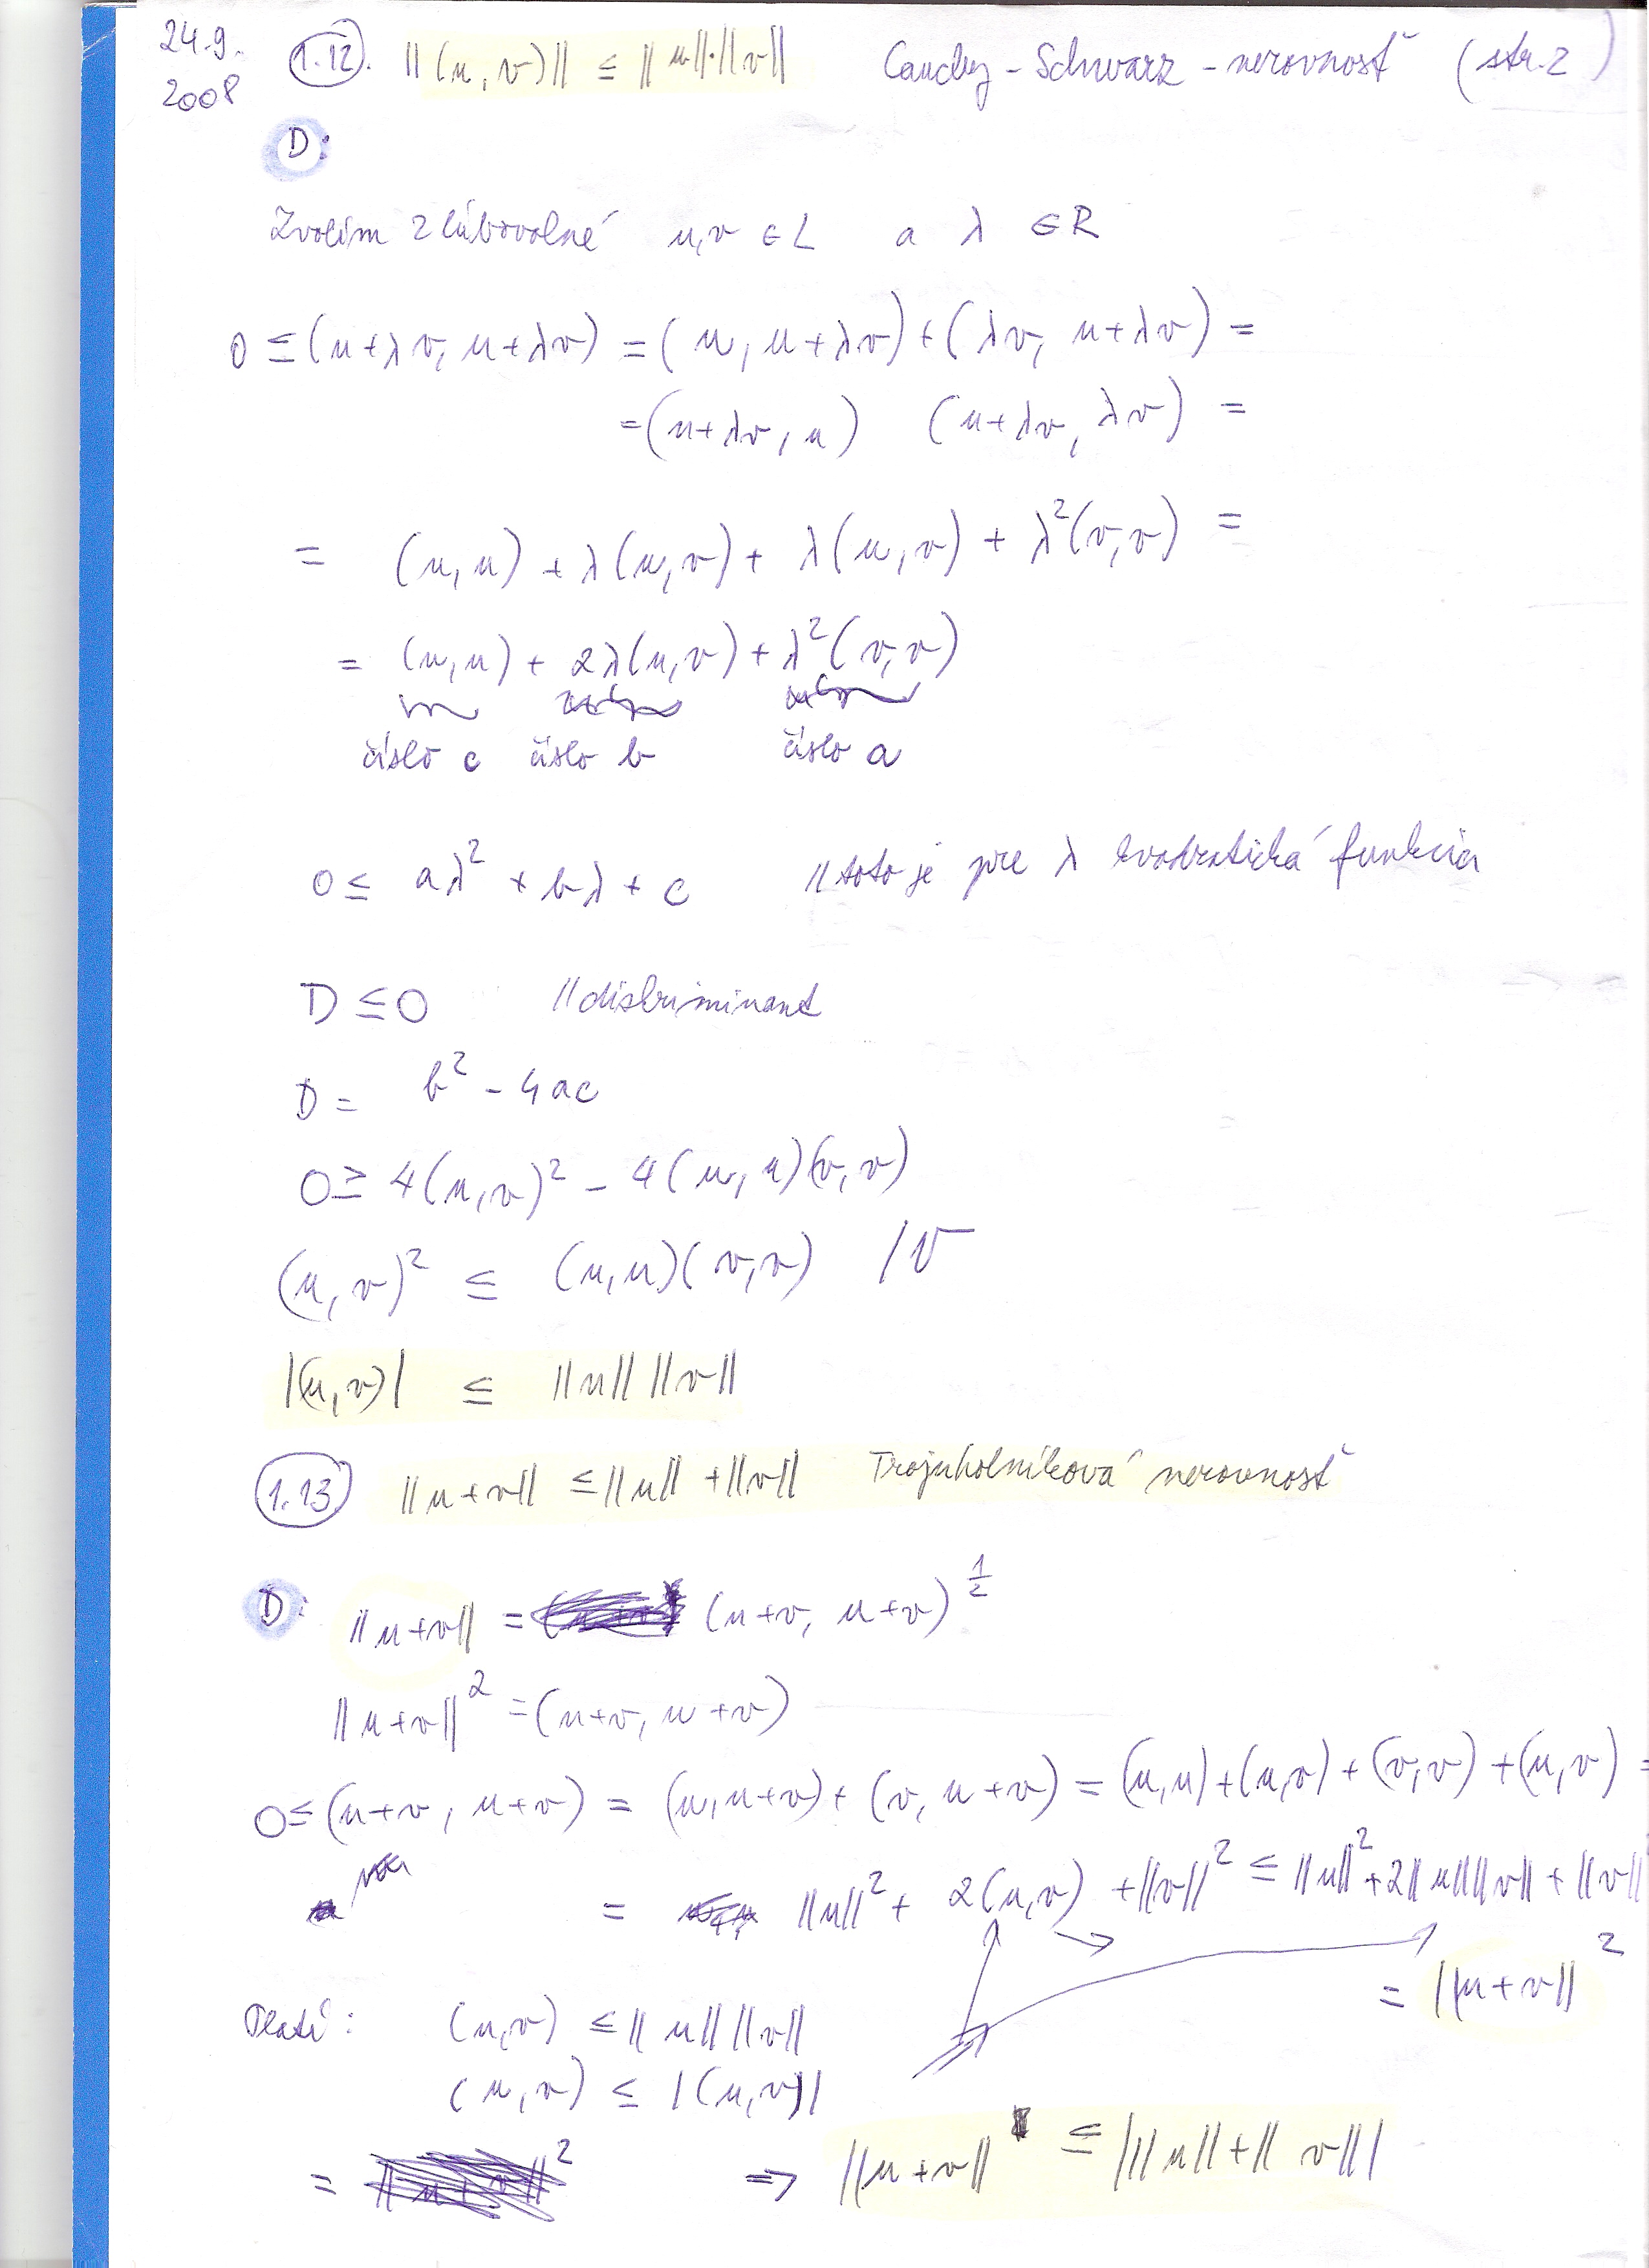 24.9.
2008
1.12. ||(u,v)|| ≤ ||u||·||v|| Cauchy - Schwarz - nerovnosť (str. 2)
D:
Zvolím 2 ľubovolné u,v ∈ L a λ ∈ R
0 ≤ (u+λv, u+λv) = (u, u+λv) + (λv, u+λv) =
= (u+λv, u) (u+λv, λv) =
= (u,u) + λ(u,v) + λ(u,v) + λ²(v,v) =
= (u,u) + 2λ(u,v) + λ²(v,v)
číslo c číslo b číslo a
0 ≤ aλ² + bλ + c // toto je pre λ kvadratická funkcia
D ≤ 0 // diskriminant
D = b² - 4ac
0 ≥ 4(u,v)² - 4(u,u)(v,v)
(u,v)² ≤ (u,u)(v,v) /√
|(u,v)| ≤ ||u|| ||v||
1.13. ||u+v|| ≤ ||u|| + ||v|| Trojuholníková nerovnosť
D: ||u+v|| = (u+v, u+v)^½
||u+v||² = (u+v, u+v)
0 ≤ (u+v, u+v) = (u, u+v) + (v, u+v) = (u,u) + (u,v) + (v,v) + (u,v) =
= ||u||² + 2(u,v) + ||v||² ≤ ||u||² + 2||u|| ||v|| + ||v||
= ||u+v||²
Platí: (u,v) ≤ ||u|| ||v||
(u,v) ≤ |(u,v)|
= ||u+v||² ⇒ ||u+v|| ≤ |||u|| + ||v|||